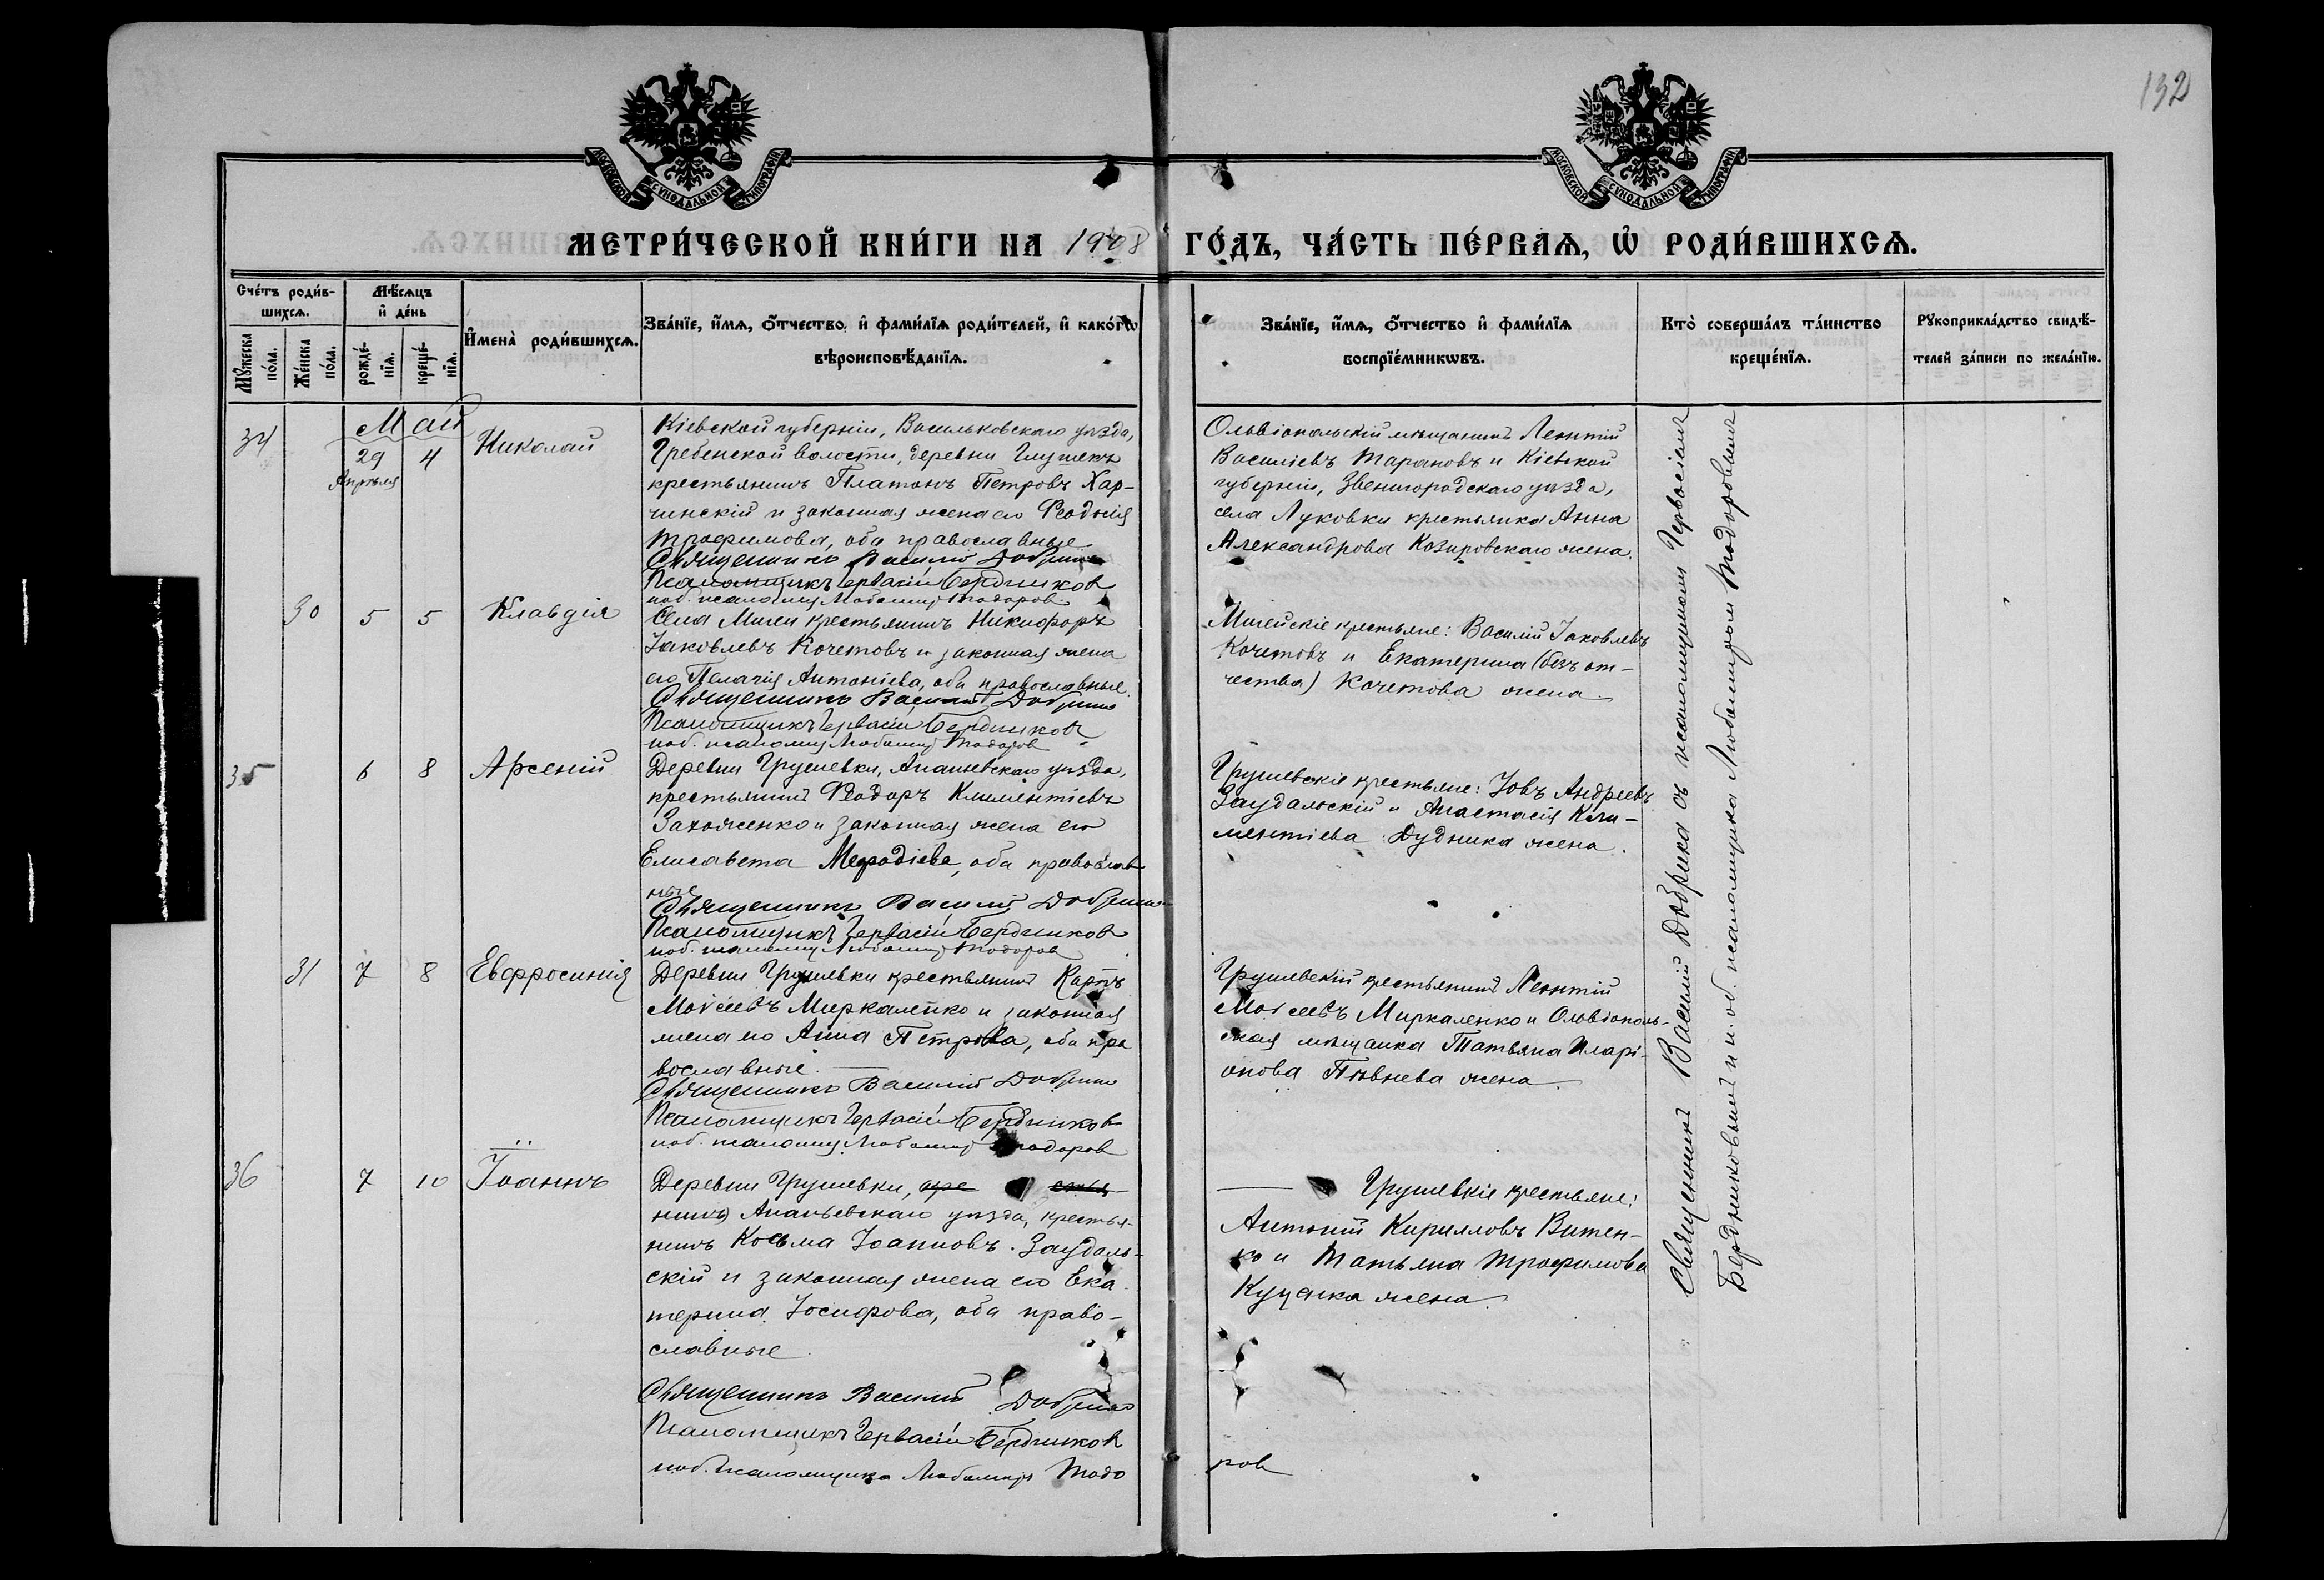 132
МОСКОВСКОЙ СУНОДАЛЬНОЙ ТИПОГРАФІИ
МОСКОВСКОЙ СУНОДАЛЬНОЙ ТИПОГРАФІИ
МЕТРИ́ЧЕСКОЙ КНИ́ГИ НА 1908 ГО́ДЪ, ЧА́СТЬ ПЕ́РВАЯ, Ѡ РОДИ́ВШИХСѦ.
Сче́тъ роди́в-
шихсѧ.
Мꙋ́жеска по́ла.
Же́нска по́ла.
Мѣ́сѧцъ
и҆ де́нь
рожде́-
нїѧ.
креще́-
нїѧ.
И҆мена̀ роди́вшихсѧ.
Зва́нїе, и҆́мѧ, ѻ҆́тчество, и҆ фами́лїѧ роди́телей, и҆ како́гѡ
вѣроисповѣ́данїѧ.
Зва́нїе, и҆́мѧ, ѻ҆́тчество и҆ фами́лїѧ
воспрїе́мникѡвъ.
Кто̀ соверша́лъ та́инство
креще́нїѧ.
Рꙋкоприкла́дство свидѣ́-
телей за́писи по жела́нїю.
Май
34
29
Апрѣля
4
Николай
Кіевской губерніи, Васильковскаго уѣзда,
Гребенской волости, деревни Глушекъ
крестьянинъ Платонъ Петровъ Хар-
чинскій и законная жена его Ѳеоднія
Трофимова, оба православные
Священникъ Василій Добрика
Псаломщикъ Гервасій Бердников
иоб. псаломщ Любомир Тодоров
Ольвіопольскій мѣщанинъ Леонтій
Василіевъ Тарановъ и Кіевской
губерніи, Звенигородскаго уѣзда,
села Луковки крестьянка Анна
Александрова Козировскаго жена.
30
5
5
Клавдія
Села Мигеи крестьянинъ Никифоръ
Іаковлевъ Кочетовъ и законная жена
его Пелагія Антоніева, оба православные.
Священникъ Василій Добрика
Псаломщикъ Гервасій Бердников
иоб. псаломщ Любомир Тодоров
Мигейскіе крестьяне: Василій Іаковлевъ
Кочетовъ и Екатерина (безъ от-
чества) Кочетова жена.
35
6
8
Арсеній
Деревни Грушевки, Ананьевскаго уѣзда,
крестьянинъ Ѳеодоръ Климентіевъ
Захоженко и законная жена его
Елисавета Меѳодіева, оба православ
ные
Священникъ Василій Добрика
Псаломщикъ Гервасій Бердников
иоб. псаломщ Любомир Тодоров
Грушевскіе крестьяне: Іовъ Андреевъ
Заудальскій и Анастасія Кли-
ментіева Дудника жена.
31
7
8
Евфросинія
Деревни Грушевки крестьянинъ Карпъ
Моісеевъ Миркаленко и законная
жена его Анна Петрова, оба пра
вославные.
Священникъ Василій Добрика
Псаломщикъ Гервасій Бердников
иоб. псаломщ Любомир Тодоров
Грушевскій крестьянинъ Леонтій
Моісеевъ Миркаленко и Ольвіополь-
ская мѣщанка Татьяна Иларі-
онова Пѣвнева жена.
36
7
10
Іоаннъ
Деревни Грушевки, кре стья
нинъ) Ананьевскаго уѣзда, крестья-
нинъ Косьма Іоанновъ Заудаль-
скій и законная жена его Ека
терина Іосифова, оба право-
славные.
Священникъ Василій Добрика
Псаломщикъ Гервасій Бердников
иоб. псаломщика Любомиръ Тодо
ров
Грушевкіе крестьяне:
Антоній Кирилловъ Витен-
ко и Татьяна Трофимова
Куценка жена.
Священникъ Василій Добрика съ псаломщиком Гервасіем
Бердниковымъ и и. об. псаломщика Любомиром Тодоровымъ